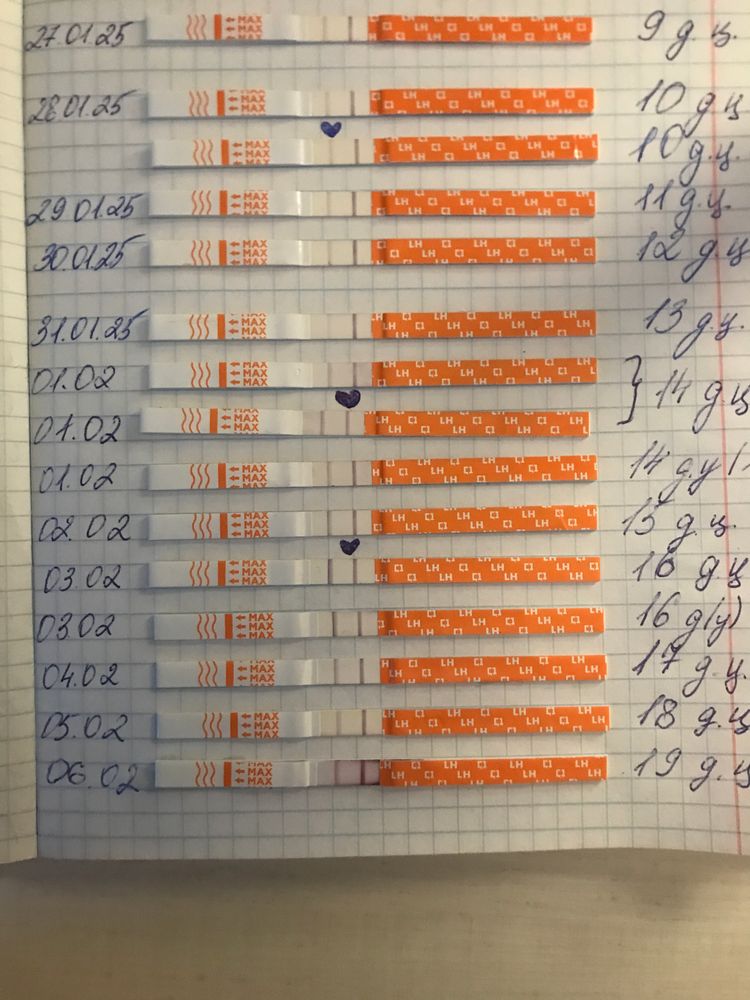 27.01.25 MAX MAX MAX LH 9 д.ц.
28.01.25 MAX MAX MAX LH 10 д.ц
MAX MAX MAX LH 10 д.ц.
29.01.25 MAX MAX MAX LH 11 д.ц.
30.01.25 MAX MAX MAX LH 12 д.ц
31.01.25 MAX MAX MAX LH 13 д.ц.
01.02 MAX MAX MAX LH
14 д.ц
01.02 MAX MAX MAX LH
01.02 MAX MAX MAX LH 14 д.ц
02.02 MAX MAX MAX LH 15 д.ц.
03.02 MAX MAX MAX LH 16 д.ц
03.02 MAX MAX MAX LH 16 д(у)
04.02 MAX MAX MAX LH 17 д.ц.
05.02 MAX MAX MAX LH 18 д.ц
06.02 MAX MAX MAX LH 19 д.ц